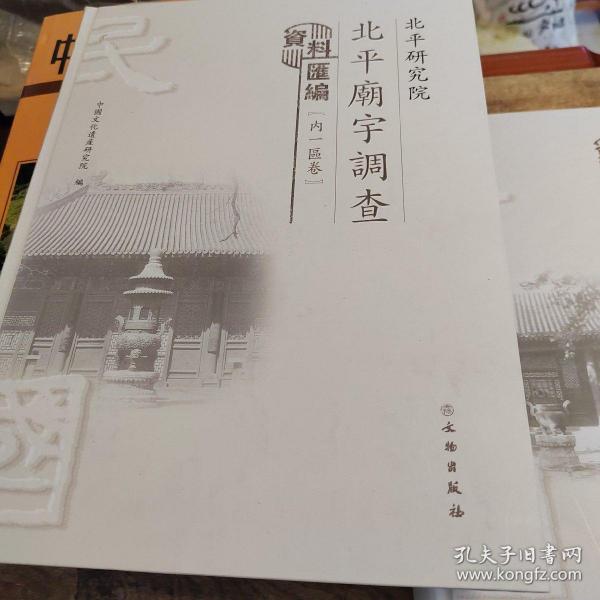 北平研究院
北平廟宇調查
資料匯編
『内一區卷』
中國文化遺產研究院 編
民
國
文物出版社
孔夫子旧书网
www.kongfz.com